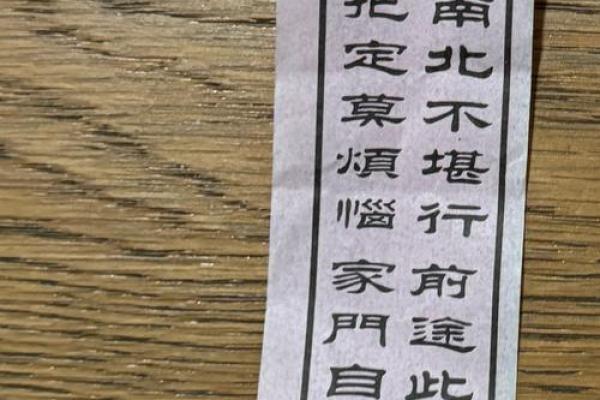 南北不堪行前途此
把定莫煩惱家門自